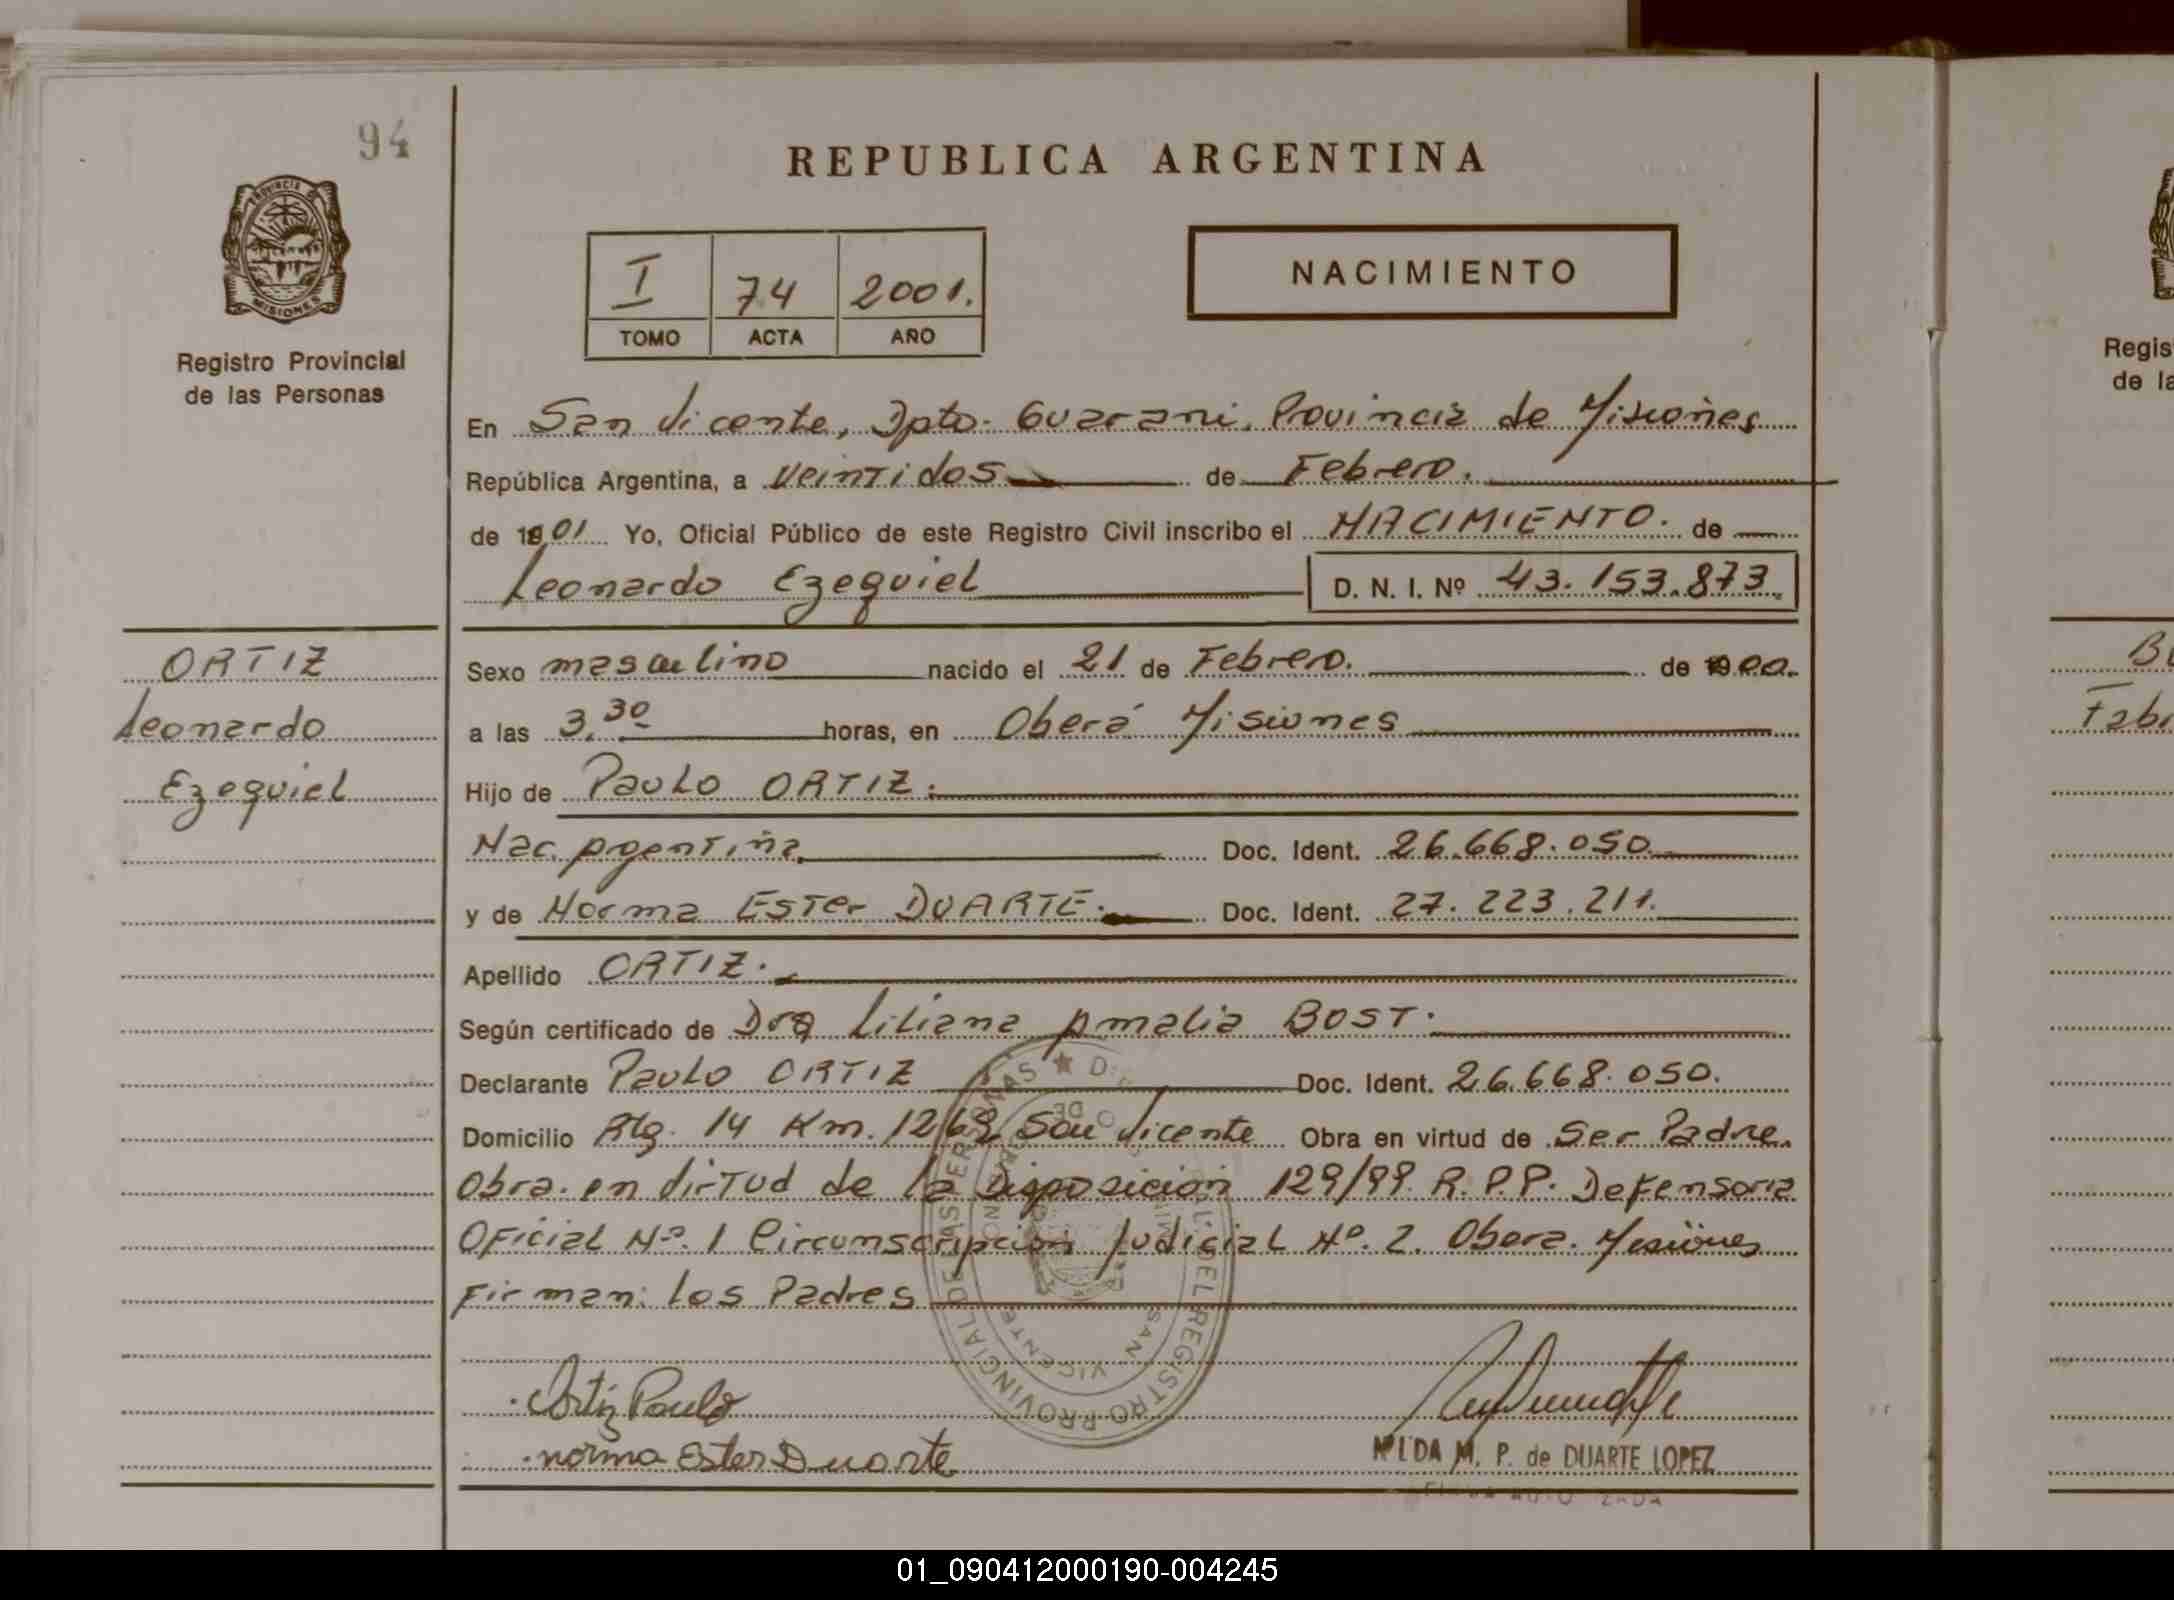 94
PROVINCIA DE
MISIONES
Registro Provincial
de las Personas
REPUBLICA ARGENTINA
I 74 2001.
TOMO ACTA AÑO
NACIMIENTO
En San Vicente, Dpto. Guarani, Provincia de Misiones
República Argentina, a veintidos de Febrero.
de 01 Yo, Oficial Público de este Registro Civil inscribo el NACIMIENTO. de
Leonardo Ezequiel D. N. I. Nº 43.153.873.
ORTIZ
Leonardo
Ezequiel
Sexo masculino nacido el 21 de Febrero. de 00.
a las 3.30 horas, en Oberá Misiones
Hijo de Paulo ORTIZ.
Nac. Argentina Doc. Ident. 26.668.050
y de Norma Ester DUARTE. Doc. Ident. 27.223.211.
Apellido ORTIZ.
Según certificado de Dra Liliana Amalia BOST.
Declarante Paulo ORTIZ Doc. Ident. 26.668.050.
Domicilio Rta. 14 Km. 1262 San Vicente Obra en virtud de Ser Padre.
Obra en virtud de la Disposición 129/99. R.P.P. Defensoria
Oficial Nº. 1 Circunscripción Judicial Nº. 2. Obera. Misiones
Firman: los Padres
REGISTRO PROVINCIAL DE LAS PERSONAS
SAN VICENTE
Ortiz Paulo
norma Ester Duarte
NILDA M. P. de DUARTE LOPEZ
Regis
de la
Fabr
01_090412000190-004245